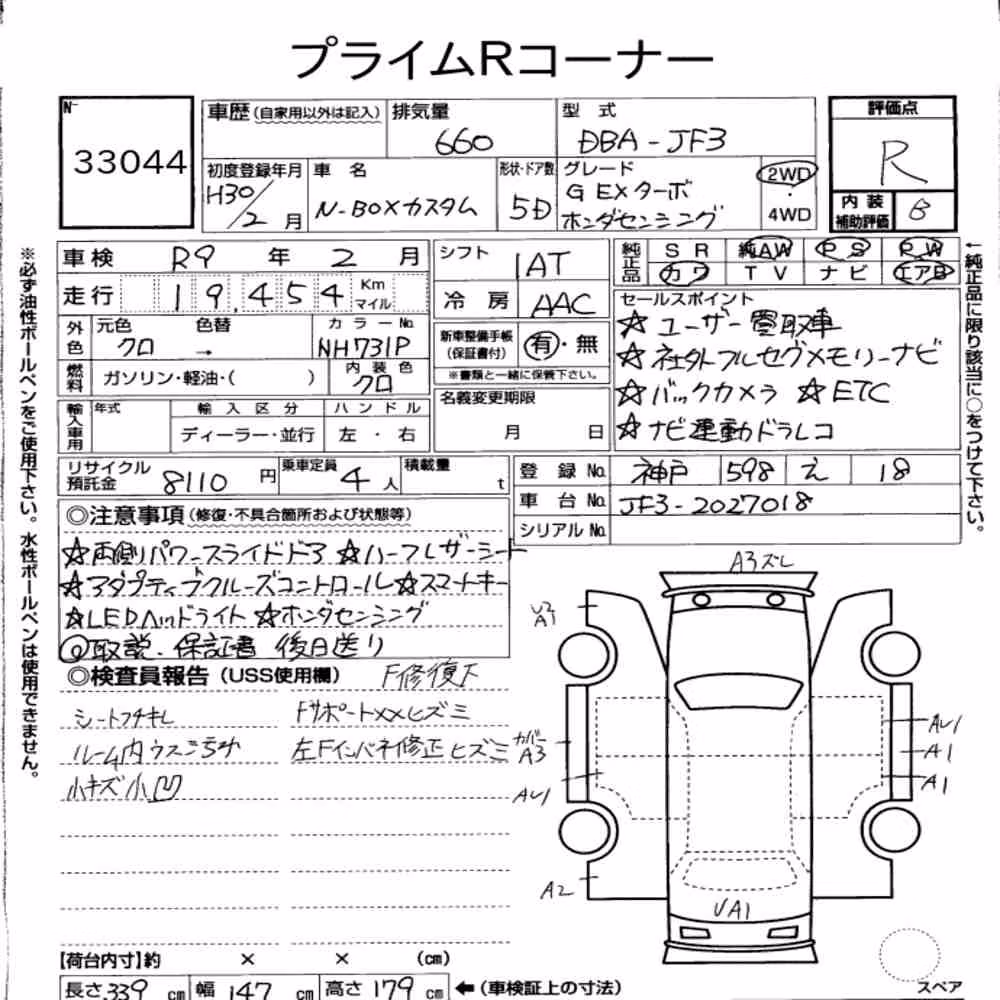 プライムRコーナー
No
33044
車歴(自家用以外は記入)
排気量
660
型 式
DBA-JF3
評価点
R
初度登録年月
H30/2月
車 名
N-BOXカスタム
形状・ドア数
5D
グレード
G EXターボ
ホンダセンシング
2WD
・
4WD
内装
補助評価
B
車検 R9 年 2 月
シフト
IAT
純正品
SR 純AW PS PW
カワ TV ナビ エアB
走行 19,454 Km
マイル
冷房 AAC
セールスポイント
☆ユーザー買取車
☆社外フルセグメモリーナビ
☆バックカメラ ☆ETC
☆ナビ連動ドラレコ
外色
元色
クロ
色替
→
カラーNo.
NH731P
新車整備手帳
(保証書付)
有・無
※書類と一緒に保管下さい。
燃料
ガソリン・軽油・( )
内装色
クロ
名義変更期限
月 日
輸入車用
年式
輸入区分
ハンドル
ディーラー・並行
左・右
リサイクル
預託金
8110円
乗車定員
4人
積載量
t
登録No. 神戸 598 え 18
車台No. JF3-2027018
シリアルNo.
◎注意事項(修復・不具合箇所および状態等)
☆両側パワースライドドア ☆ハーフレザーシート
☆アダプティブクルーズコントロール☆スマートキー
☆LEDヘッドライト ☆ホンダセンシング
◎取説・保証書 後日送り
◎検査員報告(USS使用欄)
F修復F
シートコゲキレ
ルーム内ウスゴヨゴ
小キズ小凹
FサポートXXヒズミ
左Fインパネ修正ヒズミ
A3ズレ
A1
カバー
A3
AU1
A2
AU1
A1
A1
UA1
スペア
【荷台内寸】約 × × (cm)
長さ339cm
幅147cm
高さ179cm
←(車検証上の寸法)
※必ず油性ボールペンをご使用下さい。水性ボールペンは使用できません。
←純正品に限り該当に○をつけて下さい。